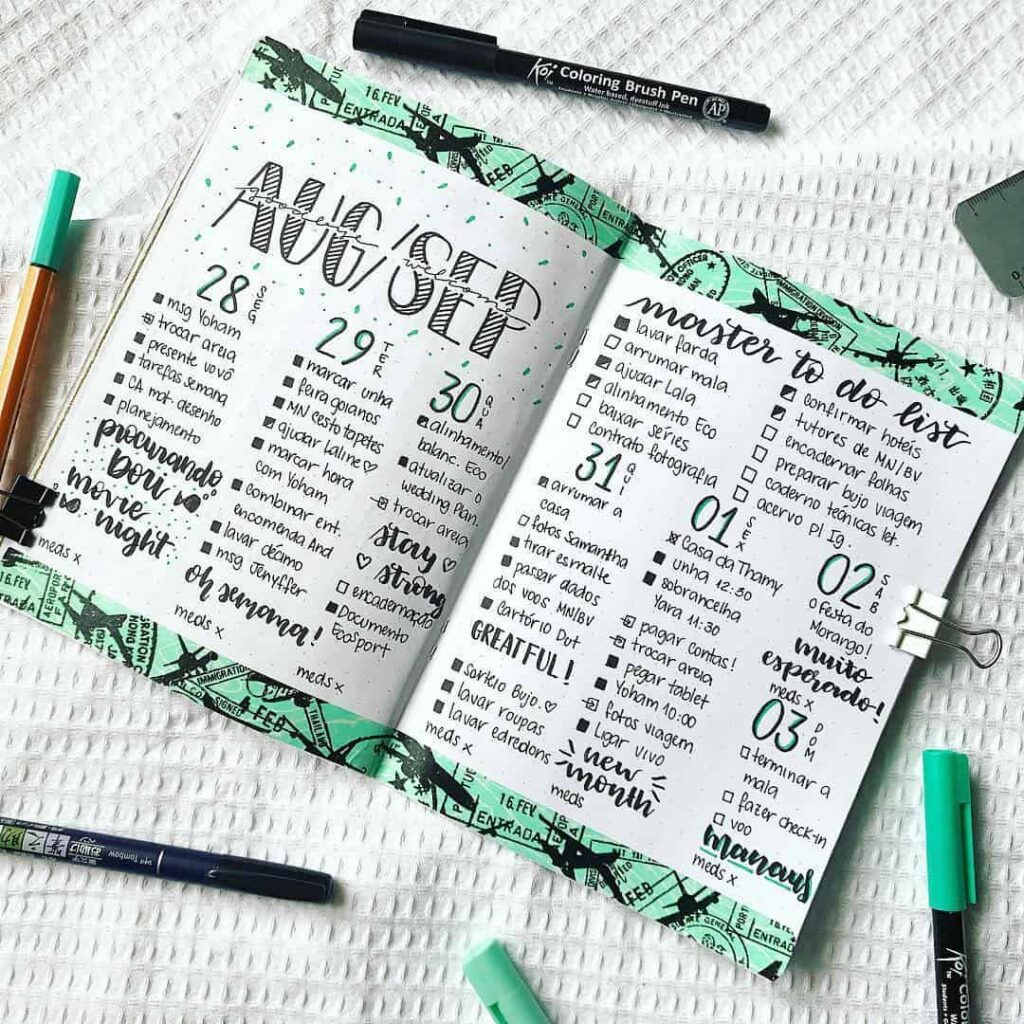 Koi Coloring Brush Pen
Water based, dyestuff ink
AP
16.FEV
ENTRADA
AUG/SEP
goodbye
welcome
28
SEG
msg Yoham
trocar areia
presente vovô
tarefas semana
CA mat. desenho
planejamento
procurando
Dori
movie
night
meds x
29
TER
marcar unha
feira goianos
MN cesto tapetes
ajudar Laline ♡
marcar hora
com Yoham
combinar ent.
encomenda And
lavar décimo
msg Jenyffer
oh semana!
meds x
30
QUA
alinhamento/
balanc. Eco
atualizar o
wedding Plan.
trocar areia
stay
strong
encadernação
Documento
EcoSport
meds x
master to do list
lavar farda
arrumar mala
ajudar Lala
alinhamento Eco
baixar séries
contrato fotografia
confirmar hotéis
tutores de MN/BV
encadernar folhas
preparar bujo viagem
caderno técnicas let.
acervo pl Ig.
31
QUI
arrumar a
casa
fotos Samantha
tirar esmalte
passar dados
dos voos MN/BV
Cartório Dut
GREATFUL!
Sorteio Bujo. ♡
lavar roupas
lavar edredons
meds x
01
SEX
Casa da Thamy
unha 12:30
sobrancelha
Yara 11:30
pagar contas!
trocar areia
pegar tablet
Yoham 10:00
fotos viagem
Ligar vivo
new
month
meds
02
SAB
Festa do
Morango!
muito
esperado!
meds x
03
DOM
terminar a
mala
fazer check-in
voo
manaus
meds x
16.FEV
ENTRADA
Tombow
Koi